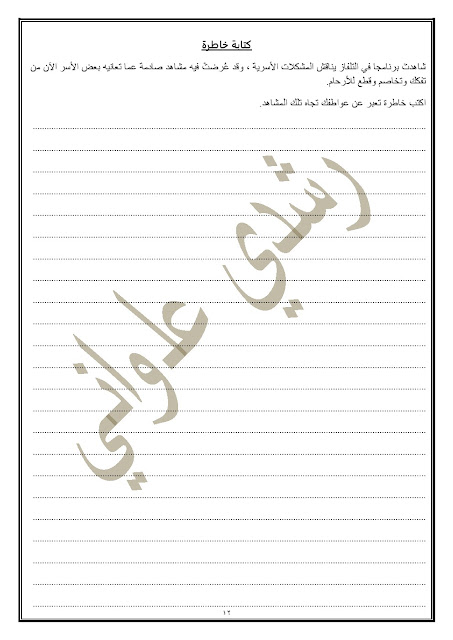 كتابة خاطرة
شاهدت برنامجا في التلفاز يناقش المشكلات الأسرية ، وقد عُرضتْ فيه مشاهد صادمة عما تعانيه بعض الأسر الآن من
تفكك وتخاصم وقطع للأرحام.
اكتب خاطرة تعبر عن عواطفك تجاه تلك المشاهد.
رشدي علواني
١٦